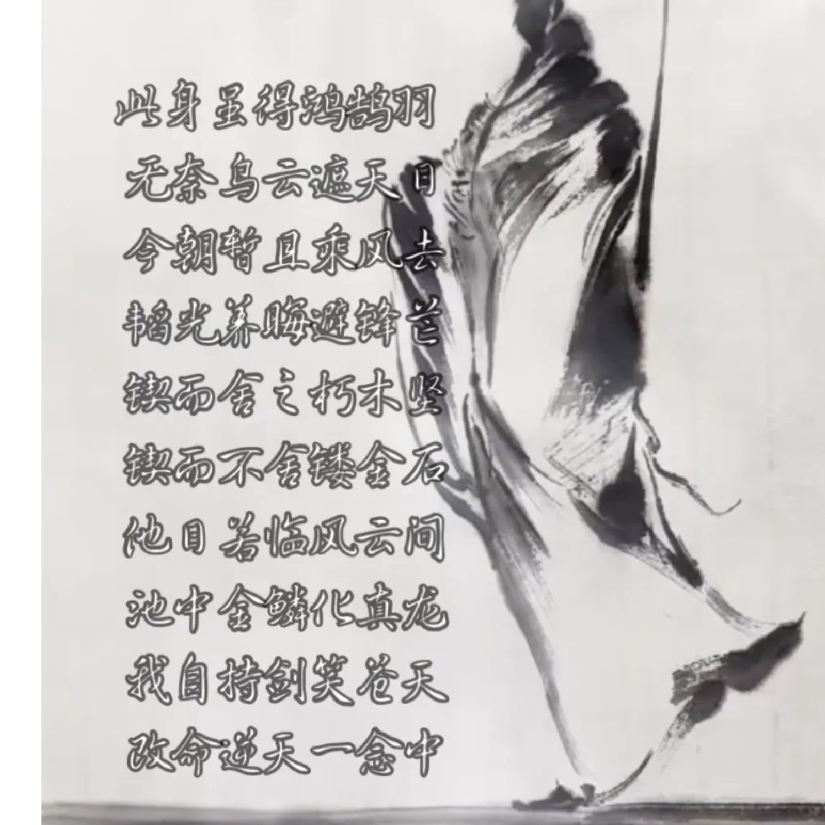 此身虽得鸿鹄羽
无奈乌云遮天日
今朝暂且乘风去
韬光养晦避锋芒
锲而舍之朽木坚
锲而不舍镂金石
他日若临风云间
池中金鳞化真龙
我自持剑笑苍天
改命逆天一念中